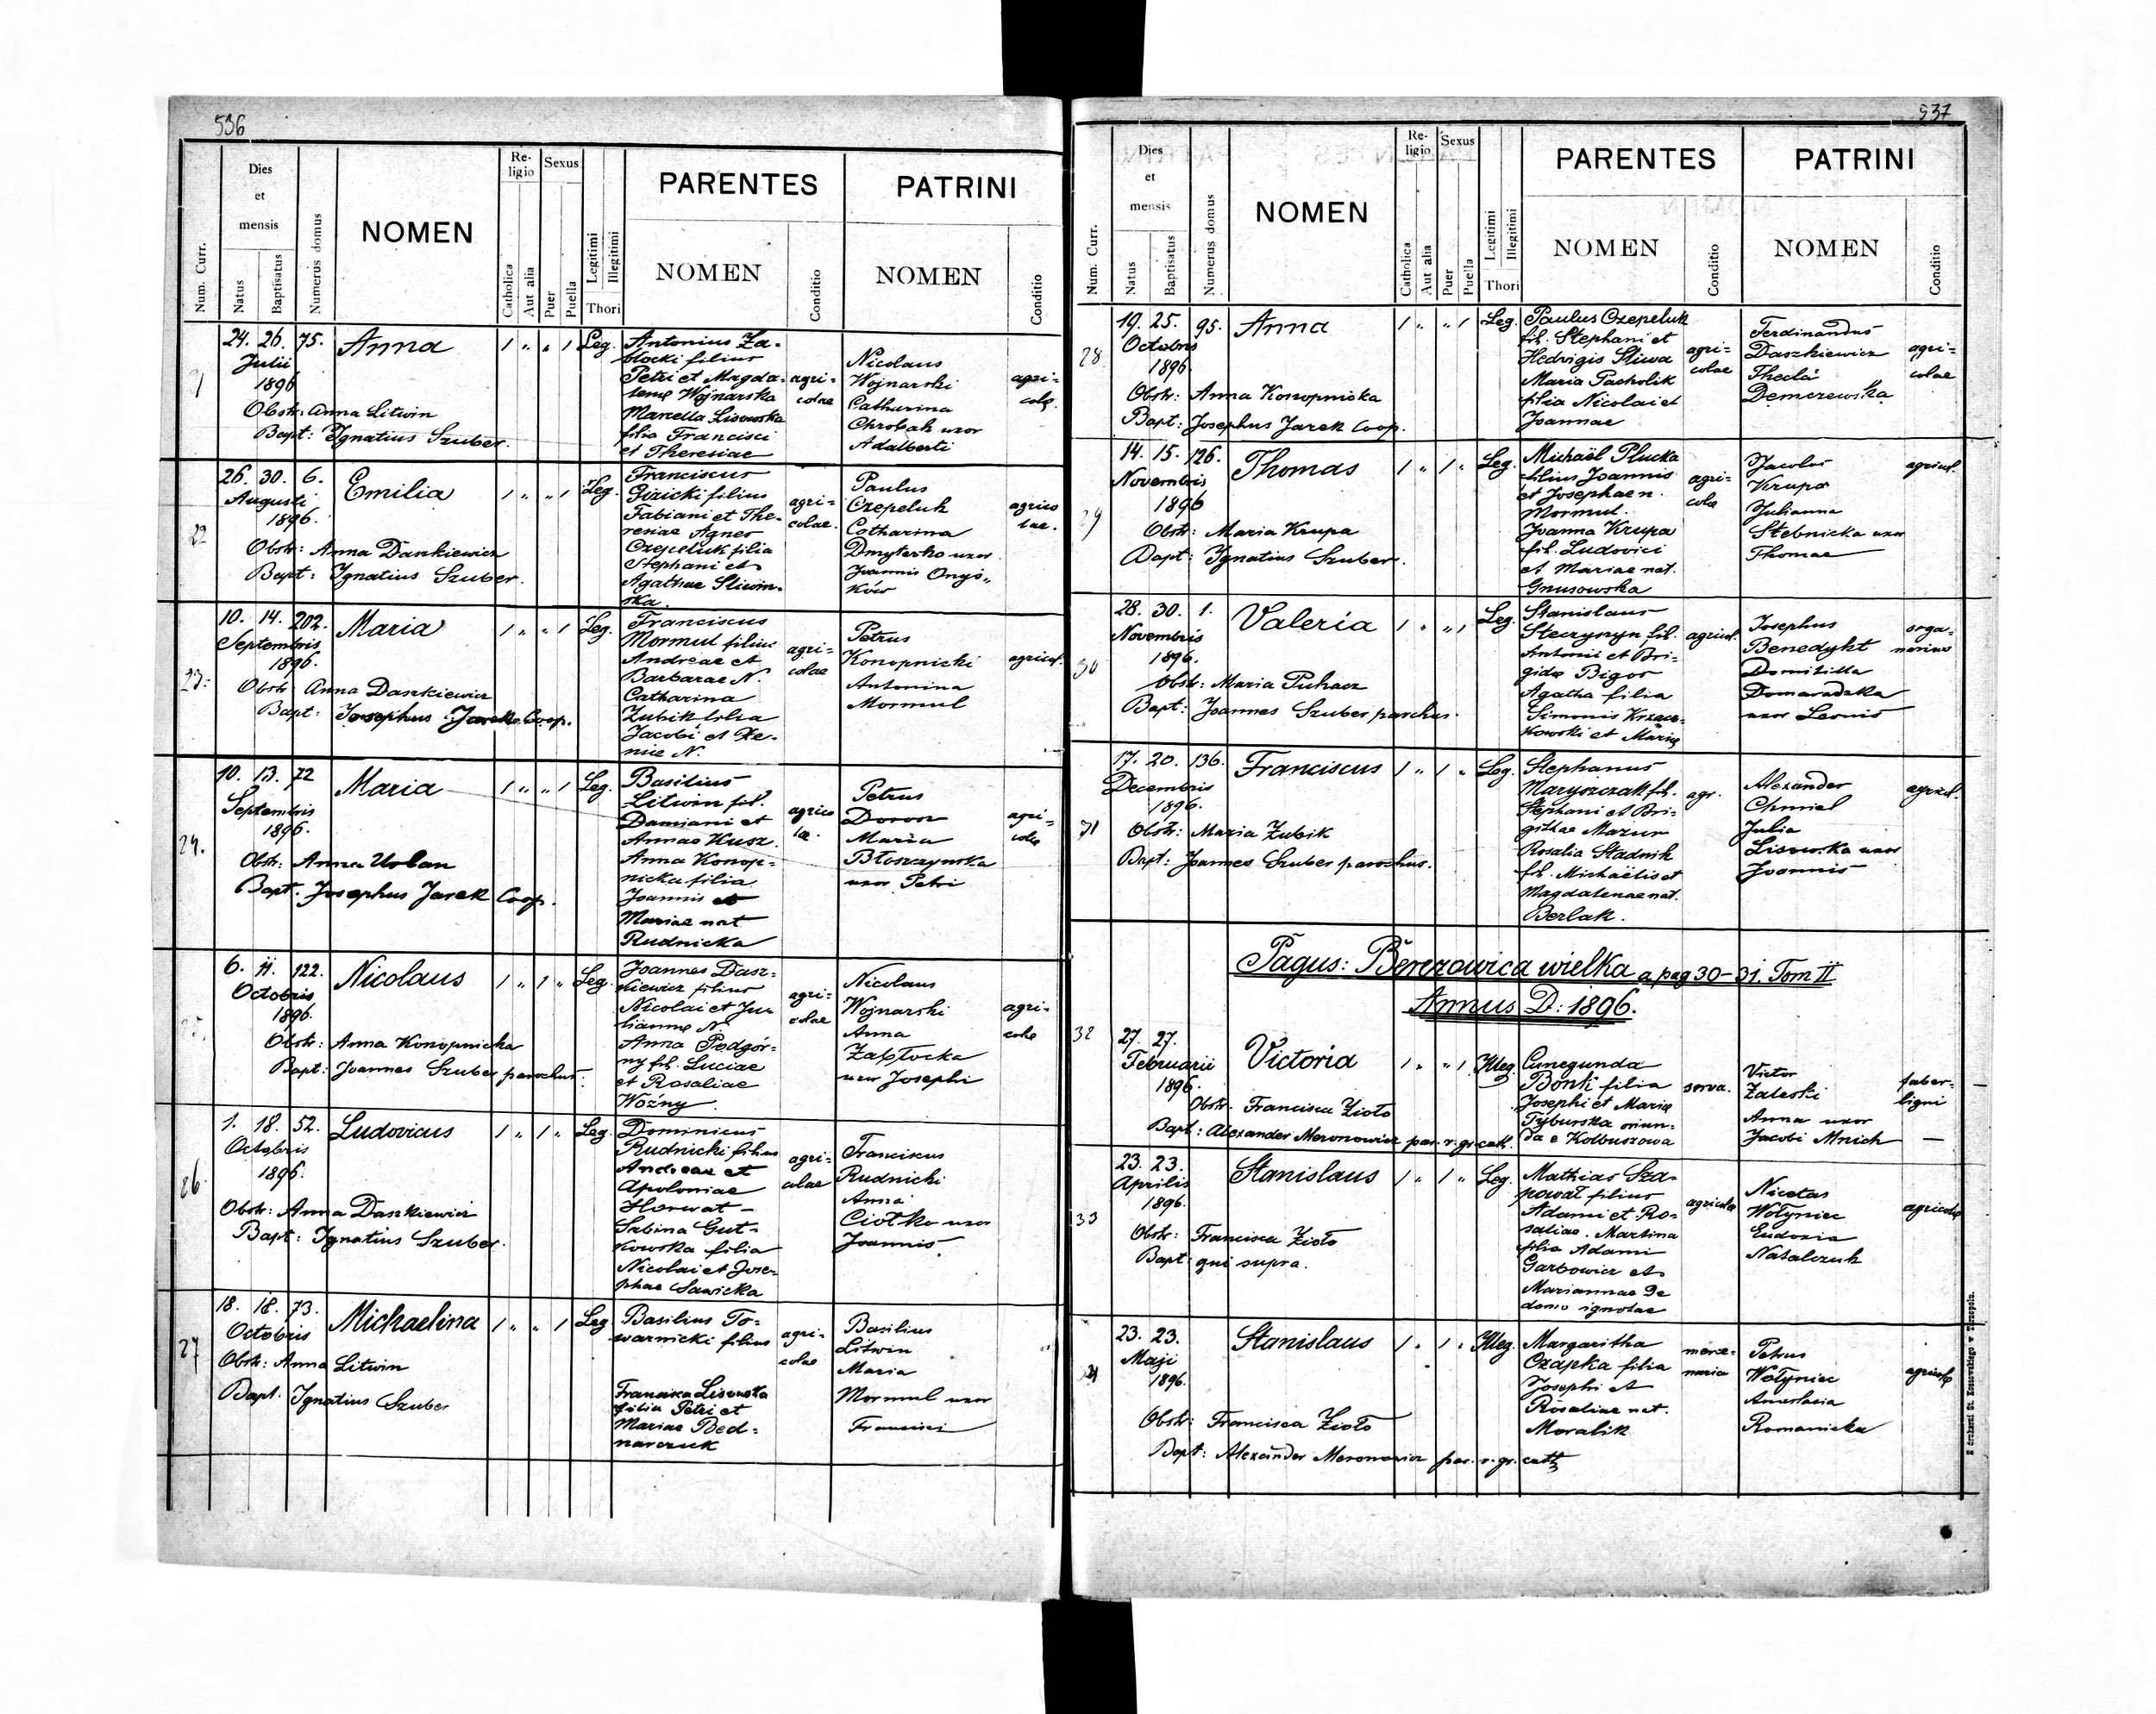 536
Num. Curr.
Dies et mensis
Natus
Baptisatus
Numerus domus
NOMEN
Religio
Catholica
Aut alia
Sexus
Puer
Puella
Legitimi
Illegitimi
Thori
PARENTES
NOMEN
Conditio
PATRINI
NOMEN
Conditio
21
24. 26. 75. Anna 1 " " 1 Leg.
Julii
1896
Obstr: Anna Litwin
Bapt: Ignatius Szuber.
Antonius Za-
błocki filius
Petri et Magda-
lenae Wojnarska
Marcella Lisowska
filia Francisci
et Theresiae
agri-
colae
Nicolaus
Wojnarski
Catharina
Chrobak uxor
Adalberti
agri-
colę.
22
26. 30. 6. Emilia 1 " " 1 Leg.
Augusti
1896.
Obstr: Anna Daszkiewicz
Bapt: Ignatius Szuber.
Franciscus
Gizicki filius
Fabiani et The-
resiae Agnes
Czepeluk filia
Stephani et
Agathae Sliwin-
ska.
agri-
colae.
Paulus
Czepeluk
Catharina
Dmyterko uxor
Joannis Onyś-
ków
agrico
lae.
23.
10. 14. 202. Maria 1 " " 1 Leg.
Septembris
1896.
Obstr: Anna Daszkiewicz
Bapt: Josephus Jarek Coop.
Franciscus
Mormul filius
Andreae et
Barbarae N.
Catharina
Zubik filia
Jacobi et Xe-
niae N.
agri-
colae
Petrus
Konopnicki
Antonina
Mormul
agricol.
24.
10. 13. 72 Maria 1 " " 1 Leg.
Septembris
1896.
Obstr: Anna Urban
Bapt. Josephus Jarek Coop.
Basilius
Litwin fil.
Damiani et
Annae Husz.
Anna Konop-
nicka filia
Joannis et
Mariae nat
Rudnicka
agrico
lae.
Petrus
Maria
Błoszczynska
uxor Petri
agri-
colę
25.
6. 11. 122. Nicolaus 1 " 1 " Leg.
Octobris
1896.
Obstr: Anna Konopnicka
Bapt: Joannes Szuber parochus.
Joannes Dasz-
kiewicz filius
Nicolai et Ju-
liannę N.
Anna Podgór-
ny fil. Luciae
et Rosaliae
Woźny.
agri-
colae
Nicolaus
Wojnarski
Anna
Zabłocka
uxor Josephi
agri-
colę
26
1. 18. 52. Ludovicus 1 " 1 " Leg.
Octobris
1896.
Obstr: Anna Daszkiewicz
Bapt: Ignatius Szuber.
Dominicus
Rudnicki filius
Andreae et
Apoloniae
Horwat -
Sabina Gut-
kowska filia
Nicolai et Jose-
phae Sawicka
agri-
colae
Franciscus
Rudnicki
Anna
Ciotka uxor
Joannis
27
18. 18. 73. Michaelina 1 " " 1 Leg
Octobris
Obstr: Anna Litwin
Bapt. Ignatius Szuber
Basilius To-
warnicki filius
Francisca Lisowska
filia Petri et
Mariae Bed-
narczuk
agri-
colae
Basilius
Litwin
Maria
Mormul uxor
Francisci
537
Num. Curr.
Dies et mensis
Natus
Baptisatus
Numerus domus
NOMEN
Religio
Catholica
Aut alia
Sexus
Puer
Puella
Legitimi
Illegitimi
Thori
PARENTES
NOMEN
Conditio
PATRINI
NOMEN
Conditio
28
19. 25. 95. Anna 1 " " 1 Leg.
Octobris
1896.
Obstr: Anna Konopnicka
Bapt: Josephus Jarek Coop.
Paulus Czepeluk
fil. Stephani et
Hedvigis Sliwa
Maria Pacholik
filia Nicolai et
Joannae
agri-
colae
Ferdinandus
Daszkiewicz
Thecla
Demczewska
agri-
colae
29
14. 15. 126. Thomas 1 " 1 " Leg.
Novembris
1896
Obstr: Maria Krupa
Bapt: Ignatius Szuber.
Michaël Plucka
filius Joannis
et Josephae n.
Mormul.
Joanna Krupa
fil. Ludovici
et Mariae nat.
Gnusowska
agri-
colę
Jacobus
Krupa
Julianna
Stebnicka uxor
Thomae
agricol.
30
28. 30. 1. Valeria 1 " " 1 Leg.
Novembris
1896.
Obstr: Maria Puhacz
Bapt: Joannes Szuber parochus.
Stanislaus
Steczyszyn fil.
Antonii et Bri-
gidae Bigos
Agatha filia
Simonis Krzacz-
kowski et Marię
agricol.
Josephus
Benedykt
Domitilla
Domaradzka
uxor Leonis
orga-
narius
31
17. 20. 136. Franciscus 1 " 1 " Leg.
Decembris
1896.
Obstr: Maria Zubik
Bapt: Joannes Szuber parochus.
Stephanus
Maryszczak fil.
Stephani et Bri-
githae Mazur
Rosalia Stadnik
fil. Michaëlis et
Magdalenae nat.
Berlak.
agr.
Alexander
Chmiel
Julia
Lisowska uxor
Joannis
agricol.
Pagus: Berezowica wielka a pag 30-31. Tom II
Annus D: 1896.
32
27. 27. Victoria 1 " " 1 Illeg.
Februarii
1896.
Obstr. Francisca Zioło
Bapt: Alexander Moronowicz par. r. gr. cath.
Cunegunda
Bonk filia
Josephi et Marię
Tyburska oriun-
da e Kolbuszowa
serva.
Victor
Zaleski
Anna uxor
Jacobi Mnich
faber-
ligni
—
33
23. 23. Stanislaus 1 " 1 " Leg.
Aprilis
1896.
Obstr: Francisca Zioło
Bapt: qui supra.
Mathias Sza-
powat filius
Adami et Ro-
saliae. Martina
filia Adami
Garbowicz et
Mariannae De
domo ignotae
agricolę
Nicetas
Wołyniec
Eudoxia
Natalczuk
agricolę
34
23. 23. Stanislaus 1 " 1 " Illeg.
Maji
1896.
Obstr: Francisca Zioło
Bapt: Alexander Moronowicz par. r. gr. cath
Margaritha
Czapka filia
Josephi et
Rosaliae nat.
Moralik
merce-
naria
Petrus
Wołyniec
Anastasia
Romanicka
agricolę
Z drukarni St. Kossowskiego w Tarnopolu.